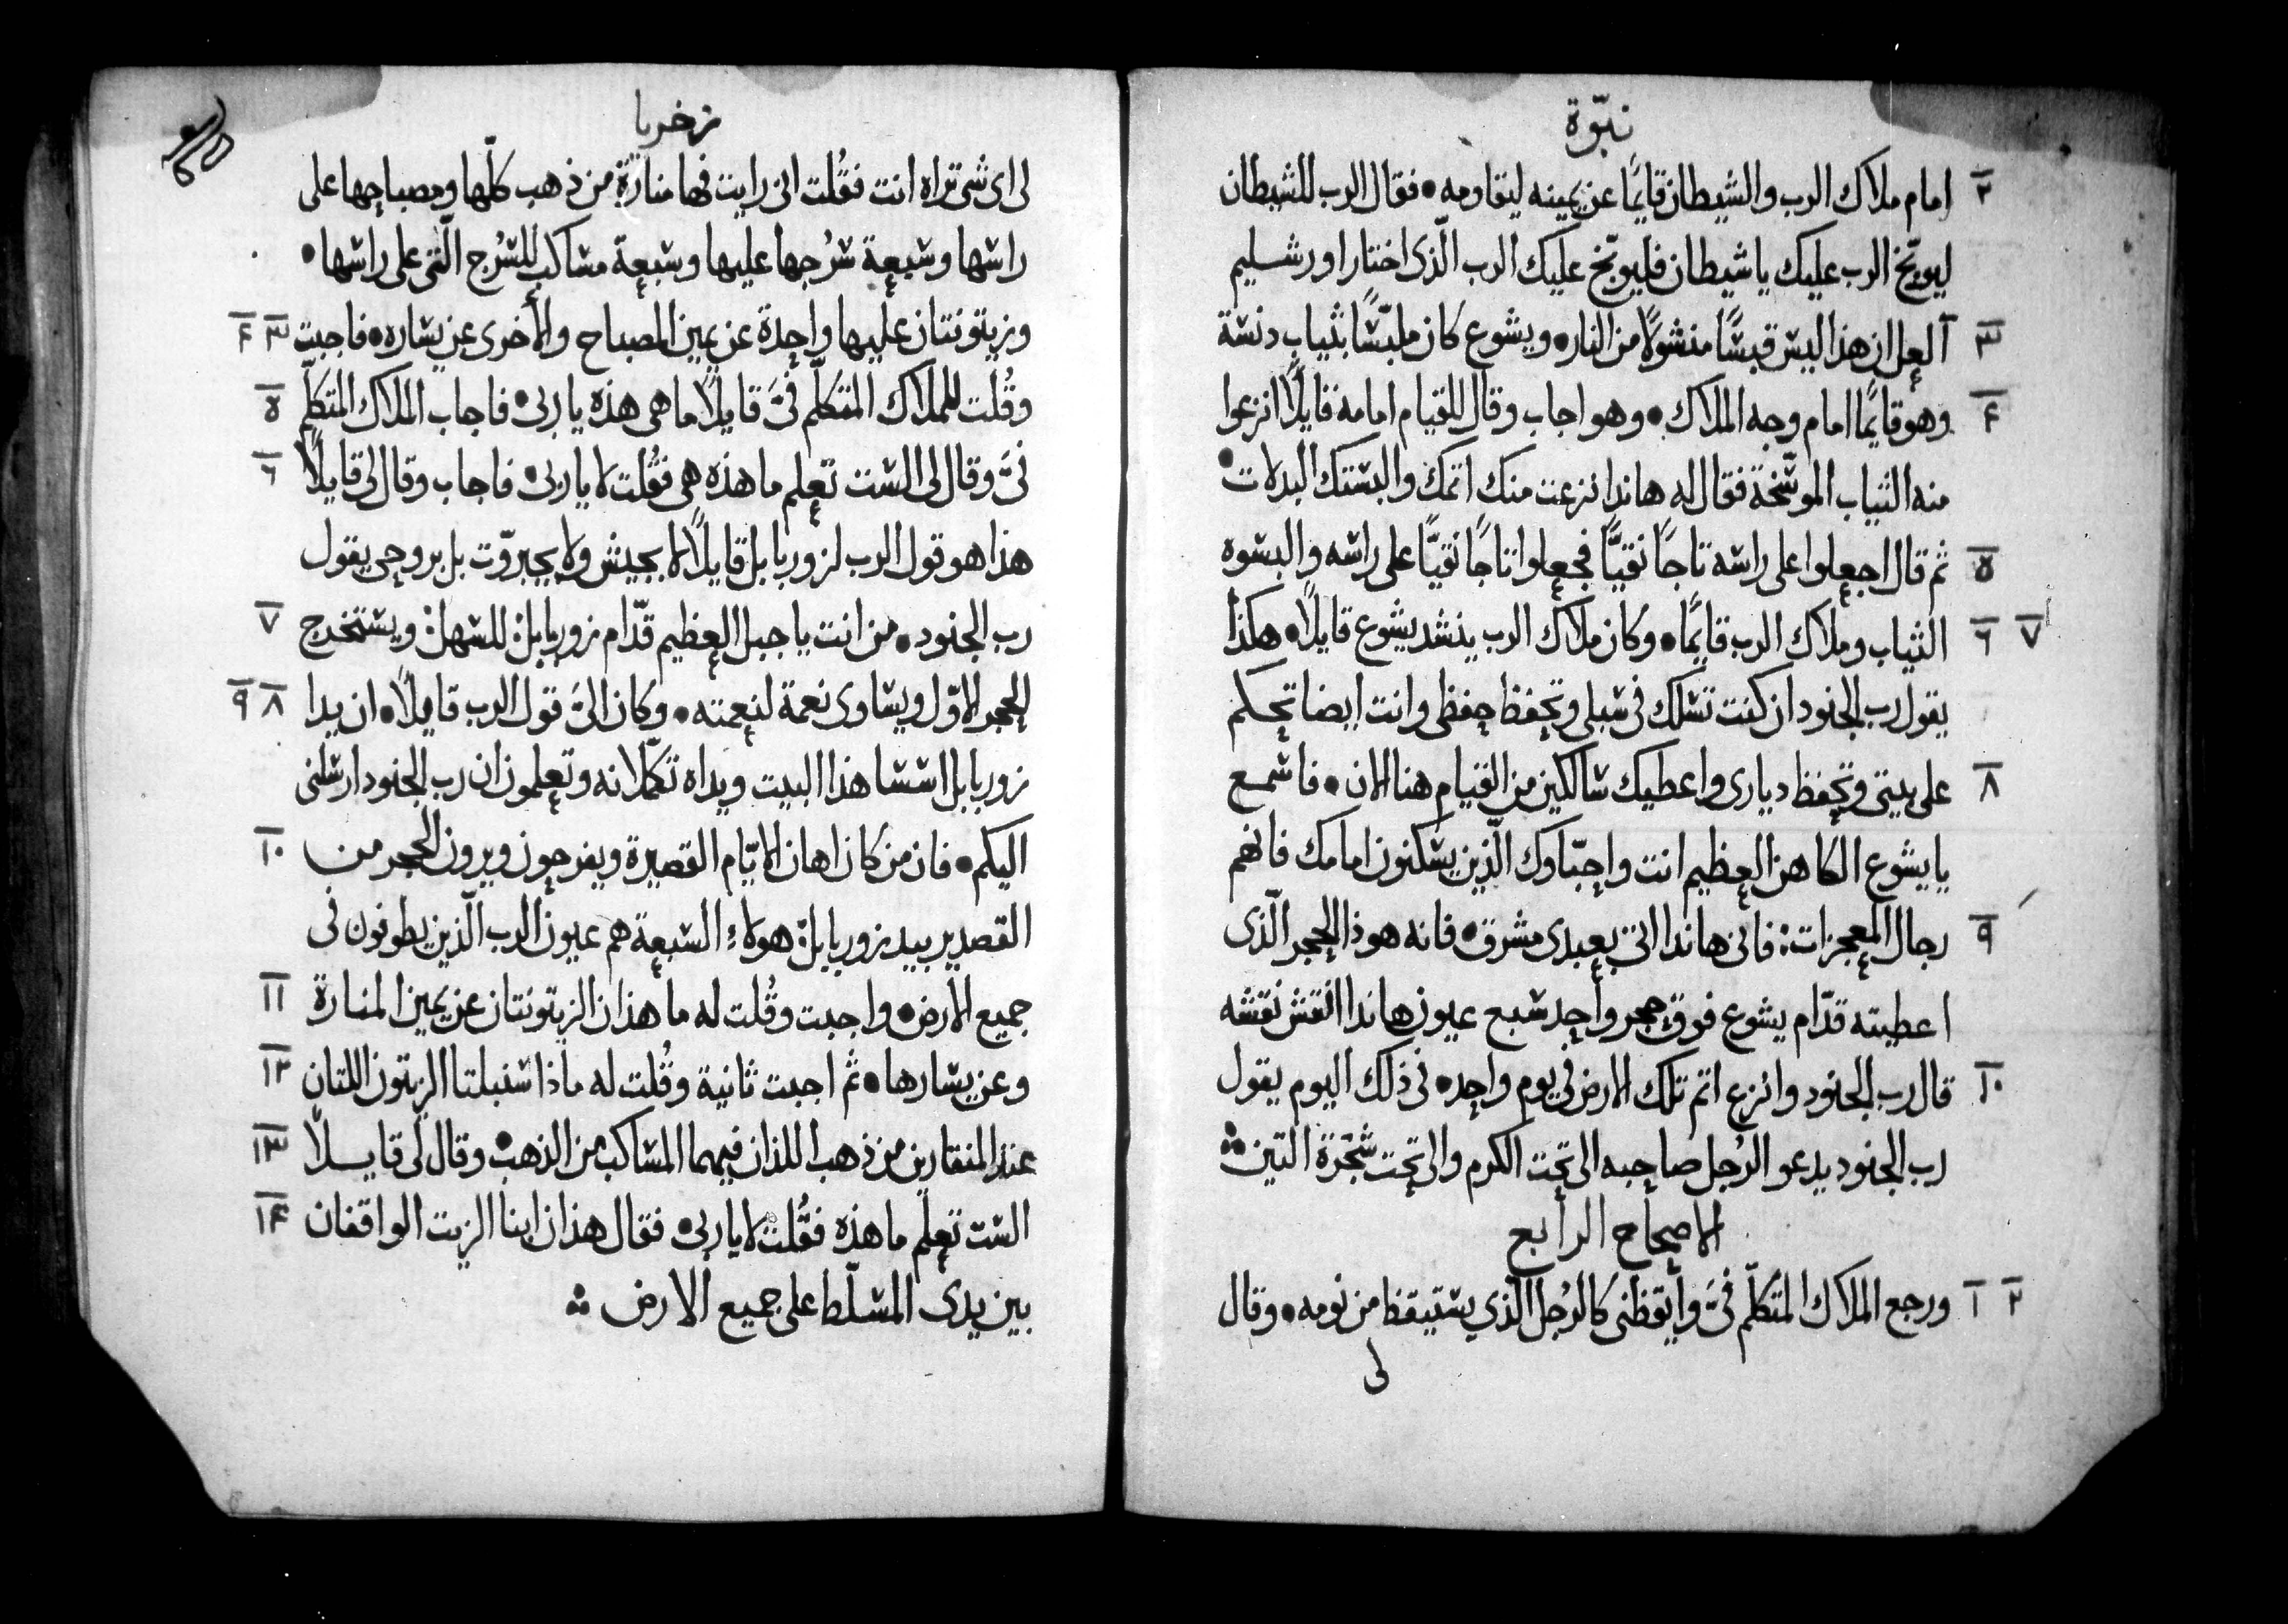 نبّوة
٢ امام ملاك الرب والشيطان قايمًا عن يمينه ليقاومه • فقال الرب للشيطان
ليوبّخ الرب عليك يا شيطان فليوبّخ عليك الرب الّذى اختار اورشليم
٣ العل ان هذا ليس قبسًا منشولًا من النار • ويشوع كان ملبّسًا بثياب دنسة
٤ وهو قايمًا امام وجه الملاك • وهو اجاب وقال للقيام امامه قايلًا انزعوا
منه الثياب الموسّخة فقال له هاندا نزعت منك اثمك والبستك البدلات •
٥ ثم قال اجعلوا على راسه تاجًا نقيًّا فجعلوا تاجًا نقيًّا على راسه والبسوه
٦ ٧ الثياب وملاك الرب قايمًا • وكان ملاك الرب ينشد يشوع قايلًا • هكذا
يقول رب الجنود ان كنت تسلك فى سبلى وتحفظ حفظى وانت ايضا تحكم
٨ على بيتى وتحفظ ديارى واعطيك سالكين من القيام هنا الان • فاسمع
يا يشوع الكاهن العظيم انت واحبّاوك الّذين يسكنون امامك فانهم
٩ رجال المعجزات : فانى هاندا اتى بعبدى مشرق • فانه هوذا الحجر الّذى
اعطيته قدّام يشوع فوق حجر واحد سبع عيون هاندا انقش نقشه
١٠ قال رب الجنود وانزع اثم تلك الارض فى يوم واحد • فى ذلك اليوم يقول
رب الجنود يدعو الرُجل صاحبه الى تحت الكرم والى تحت شجرة التين
الاصحاح الرابع
١ ٢ ورجع الملاك المتكلّم فىَّ وايقظنى كالرُجل الّذي يستيقظ من نومه • وقال
لى
زخريا
لى اى شى تراه انت فقُلت انى رايت فها منارة من ذهب كلّها ومصباحها على
راسها وسبعة سُرجها عليها وسبعة مساكب للسُرج الّتى على راسها •
وزيتونتان عليها واحدة عن يمين المصباح والأخرى عن يساره • فاجبت ٣ ٤
وقُلت للملاك المتكلّم فىَّ قايلًا ما هى هذه يا ربى • فاجاب الملاك المتكلّم ٥
فىَّ وقال لى الست تعلم ما هذه هى فقُلت لا يا ربى • فاجاب وقال لى قايلًا ٦
هذا هو قول الرب لزوربابل قايلًا لا بجيش ولا بجبروّت بل بروحى يقول
رب الجنود • من انت يا جبل العظيم قدّام زوربابل : للسهل : ويستخرج ٧
الحجر الاوّل ويساوى نعمة لنعمته • وكان الىَّ قول الرب قايلًا • ان يدا ٨ ٩
زوربابل اسسا هذا البيت ويداه تكمّلانه وتعلمون ان رب الجنود ارسلنى
اليكم • فان من كان اهان الايّام القصيرة ويفرحون ويرون الحجر من ١٠
القصدير بيد زوربابل : هولاء السبعة هم عيون الرب الّذين يطوفون فى
جميع الارض • واجبت وقُلت له ما هذان الزيتونتان عن يمين المنارة ١١
وعن يسارها • ثم اجبت ثانية وقُلت له ماذا سنبلتا الزيتون اللتان ١٢
عند المنقارين من ذهب اللذان فيهما المساكب من الذهب • وقال لى قايلًا ١٣
الست تعلم ما هذه فقُلت لا يا ربى • فقال هذان ابنا الزيت الواقفان ١٤
بين يدى المسلّط على جميع الارض